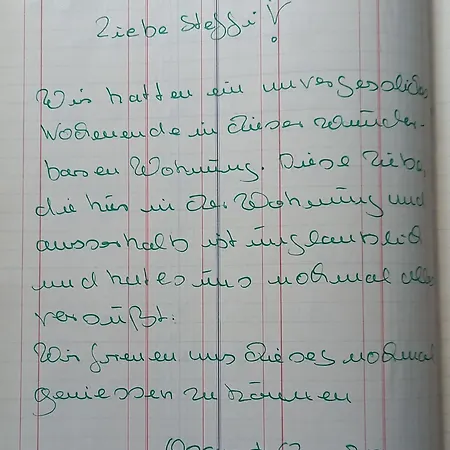 Liebe Steffi!
Wir hatten ein unvergessliches
Wochenende in dieser wunder-
baren Wohnung. Diese Liebe,
die hier in der Wohnung und
ausserhalb ist unglaublich
und hat es uns nochmal alles
versüßt.
Wir freuen uns dieses nochmal
geniessen zu können